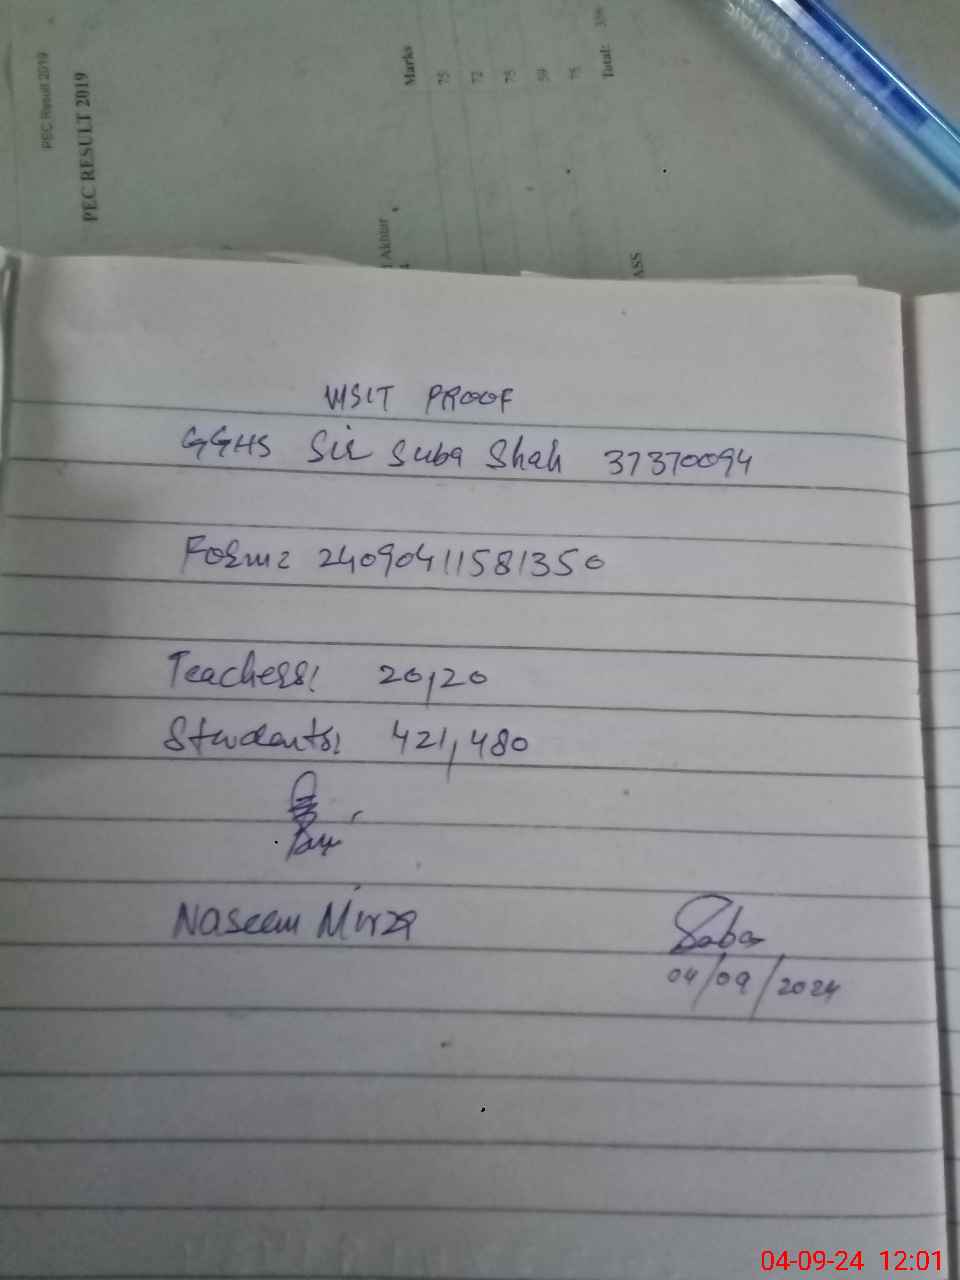 PEC Result 2019
PEC RESULT 2019
Marks
75
72
75
59
75
Total:
Akhtar
ASS
VISIT PROOF
GGHS Sir Suba Shah 37370094
Form: 24090411581350
Teachers: 20,20
Students: 421,480
Naseem Mirza
Saba
04/09/2024
04-09-24 12:01